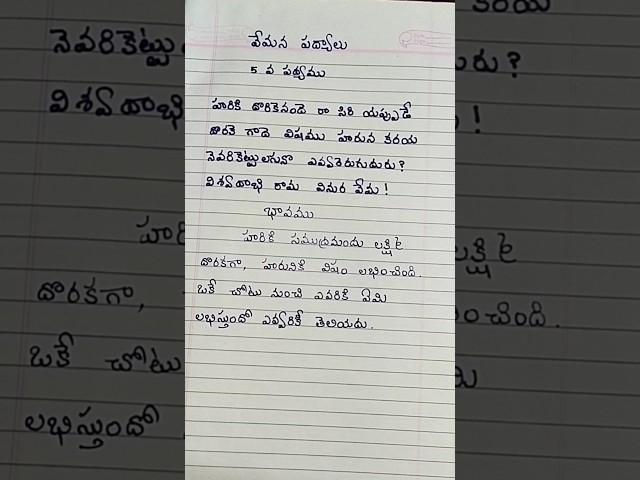 వేమన పద్యాలు
5 వ పద్యము
హరికి దొరికెనందె రా సిరి యపుపుడే
దొరకె గాదె విషము హరున కరయ
నెవరికెట్టులగునొ ఎవవరెరుగుదురు?
విశవదాభి రామ వినుర వేమ!
భావము
హరికి సముద్రమందు లక్ష్మి
దొరకగా, హరునికి విషం లభించింది.
ఒకే చోటు నుంచి ఎవరికి ఏమి
లభిస్తుందో ఎవ్వరికీ తెలియదు.